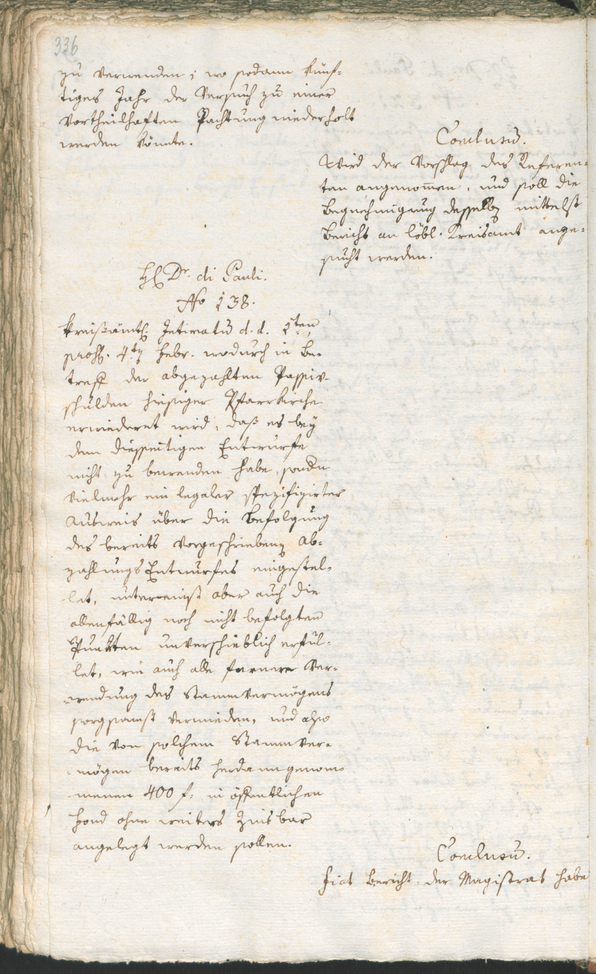 336
zu verwenden; wo sodann künf-
tiges Jahr der Versuch zu einer
vortheilhaften Pachtung wiederholt
werden könnte.
Conclusum.
Wird der Vorschlag des Referen-
ten angenommen, und soll die
Begnehmigung desselben mittelst
Bericht an löbl. Kreisamt ange-
sucht werden.
H. Dr. di Pauli.
No 138.
Kreisämtl. Intimatum d. d. 1ten
prss. 4ten Febr. wodurch in Be-
treff der abgezahlten Passiv-
schulden hiesiger Pfarrkirche
erwiedert wird, daß es bey
dem diesseitigen Entwurfe
nicht zu bewenden habe, sondern
vielmehr ein legaler spezifizirter
Ausweis über die Befolgung
des bereits vorgeschriebenen Ab-
zahlungs Entwurfes eingestel-
let, aber auch die
allenfällig noch nicht befolgten
Punkten unverschieblich erfül-
let, wie auch alle fernere Ver-
wendung des Stammvermögens
sorgsamst vermieden, und also
die von solchem Stammver-
mögen bereits herdanngenom-
menen 400 f. in öffentlichen
Fond ohne weiters zinsbar
angelegt werden sollen.
Conclusum.
Fiat Bericht, der Magistrat habe